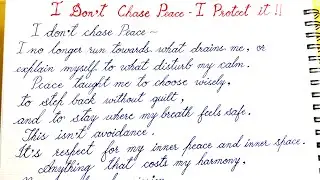 I Don't Chase Peace - I Protect it !!
I don't chase Peace ~
I no longer run towards what drains me, or
explain myself to what disturb my calm.
Peace taught me to choose wisely,
to step back without guilt,
and to stay where my breath feels safe.
This isn't avoidance.
It's respect for my inner peace and inner space.
Anything that costs my harmony,